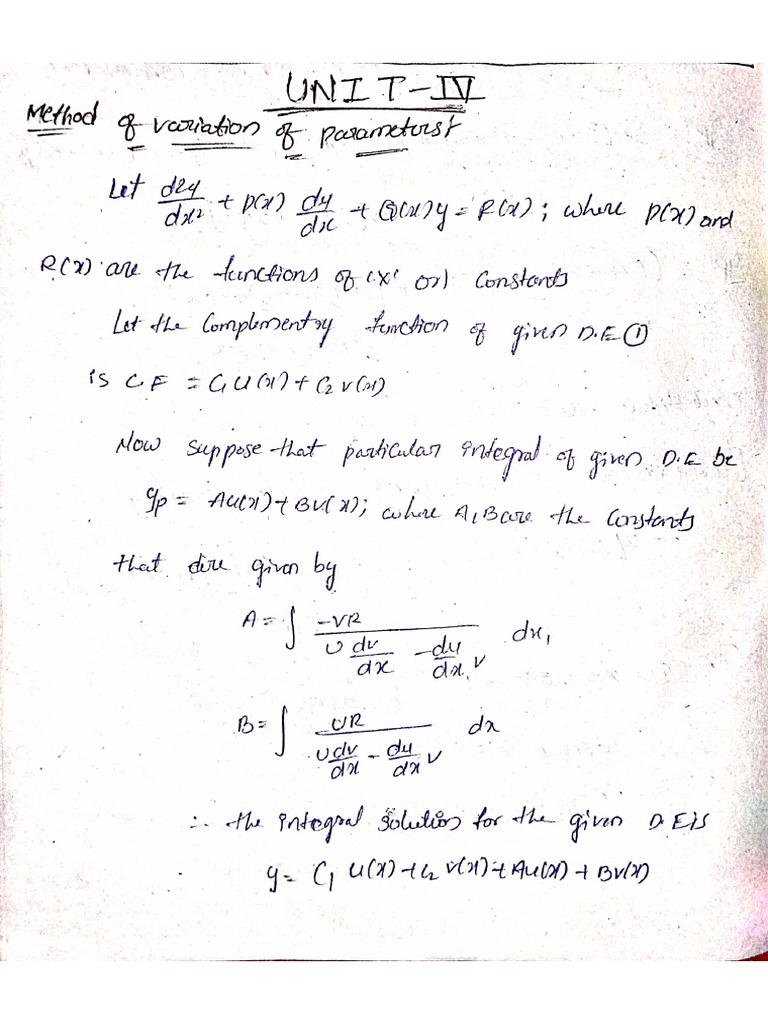 UNIT-IV
Method of variation of parameters†
Let d2y/dx² + P(x) dy/dx + Q(x)y = R(x); where P(x) and
R(x) are the functions of 'x' or) Constants
Let the Complementry function of given D.E ①
is C.F = C₁U(x) + C₂V(x)
Now suppose that particular integral of given D.E be
yp = AU(x) + BV(x); where A, B are the Constants
that dire given by
A = ∫ -VR / (U dv/dx - du/dx.V) dx,
B = ∫ UR / (U dv/dx - du/dx V) dx
∴ the integral solution for the given D.E is
y = C₁ U(x) + C₂ V(x) + AU(x) + BV(x)